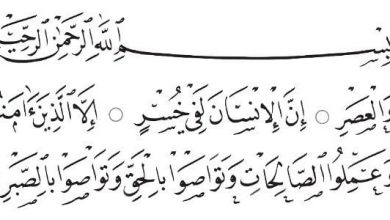 بِسْمِ اللَّهِ الرَّحْمَٰنِ الرَّحِيمِ
وَالْعَصْرِ ○ إِنَّ الْإِنْسَانَ لَفِي خُسْرٍ ○ إِلَّا الَّذِينَ ءَامَنُوا
وَعَمِلُوا الصَّالِحَاتِ وَتَوَاصَوْا بِالْحَقِّ وَتَوَاصَوْا بِالصَّبْرِ